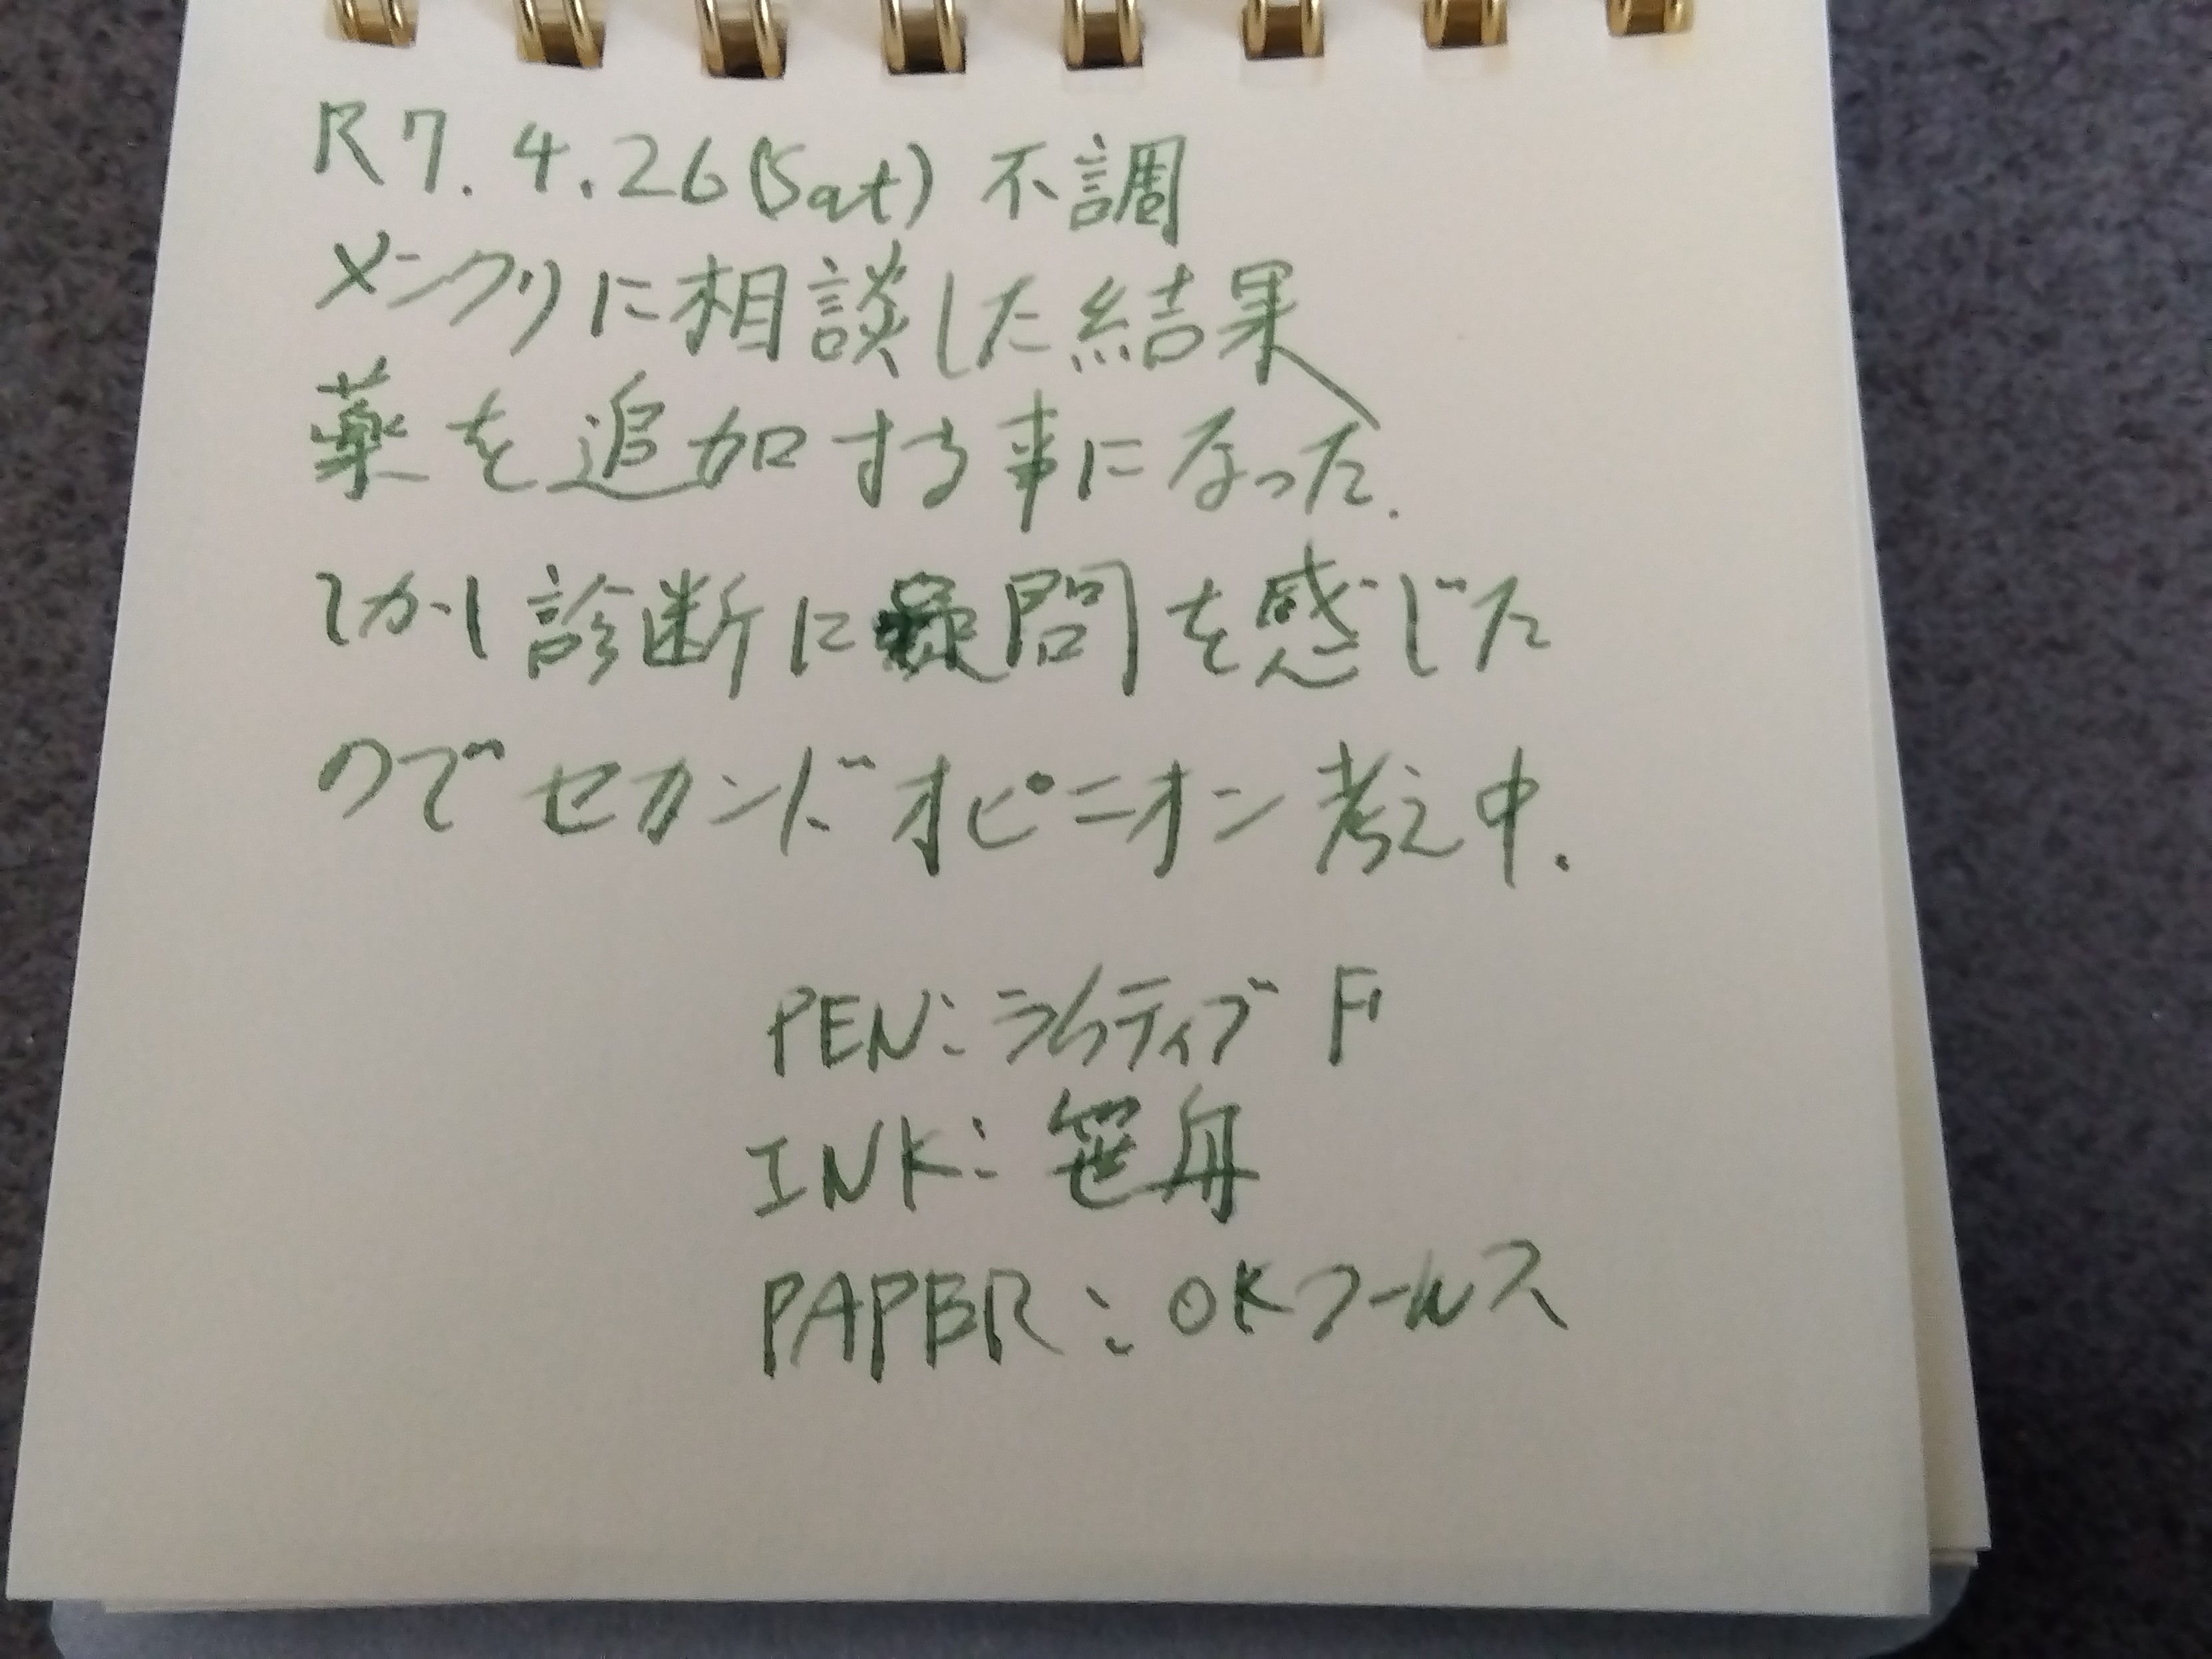 R7.4.26(Sat) 不調
メンクリに相談した結果
薬を追加する事になった.
しかし診断に疑問を感じた
のでセカンドオピニオン考え中.
PEN: ライティブ F
INK: 笹舟
PAPER: OKフールス